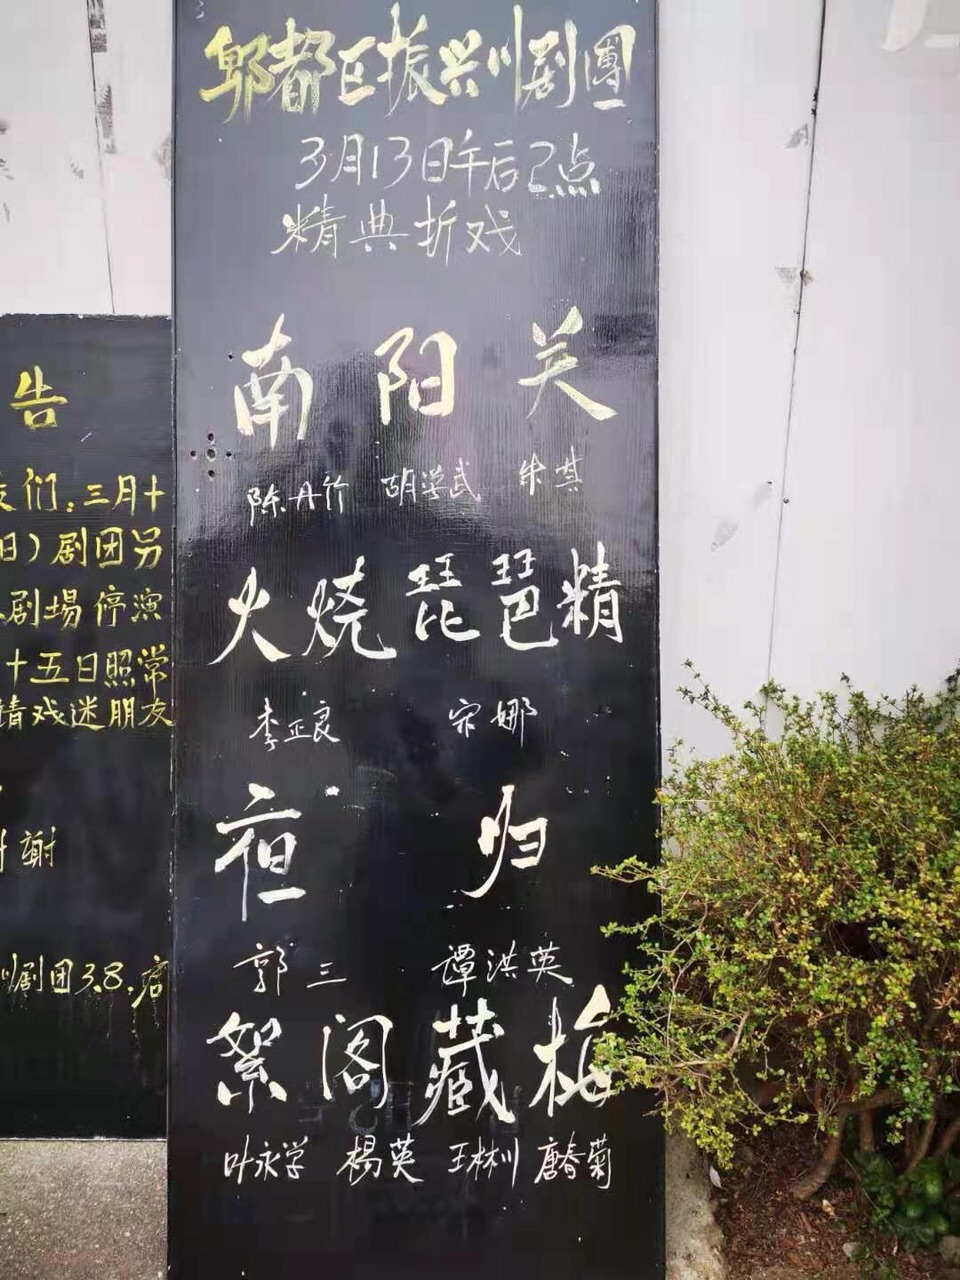 郫都区振兴川剧團
3月13日午后2点
精典折戏
南阳关
陈丹竹 胡学武 朱其
火烧琵琶精
李正良 宋娜
夜归
郭三 谭洪英
絮阁藏梅
叶永学 楊英 王彬川 唐春菊
告
友们:三月十
日)剧团另
剧場停演
十五日照常
請戏迷朋友
谢
川剧团3.8.启